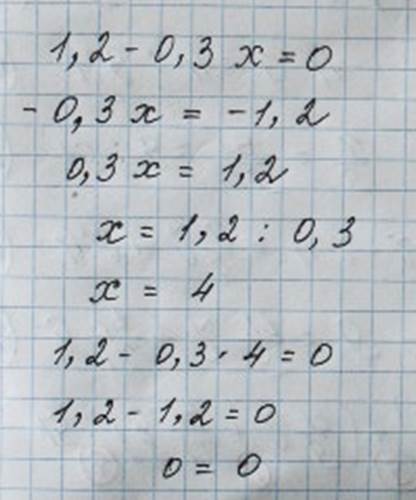 1,2 - 0,3 x = 0
- 0,3 x = - 1,2
0,3 x = 1,2
x = 1,2 : 0,3
x = 4
1,2 - 0,3 · 4 = 0
1,2 - 1,2 = 0
0 = 0